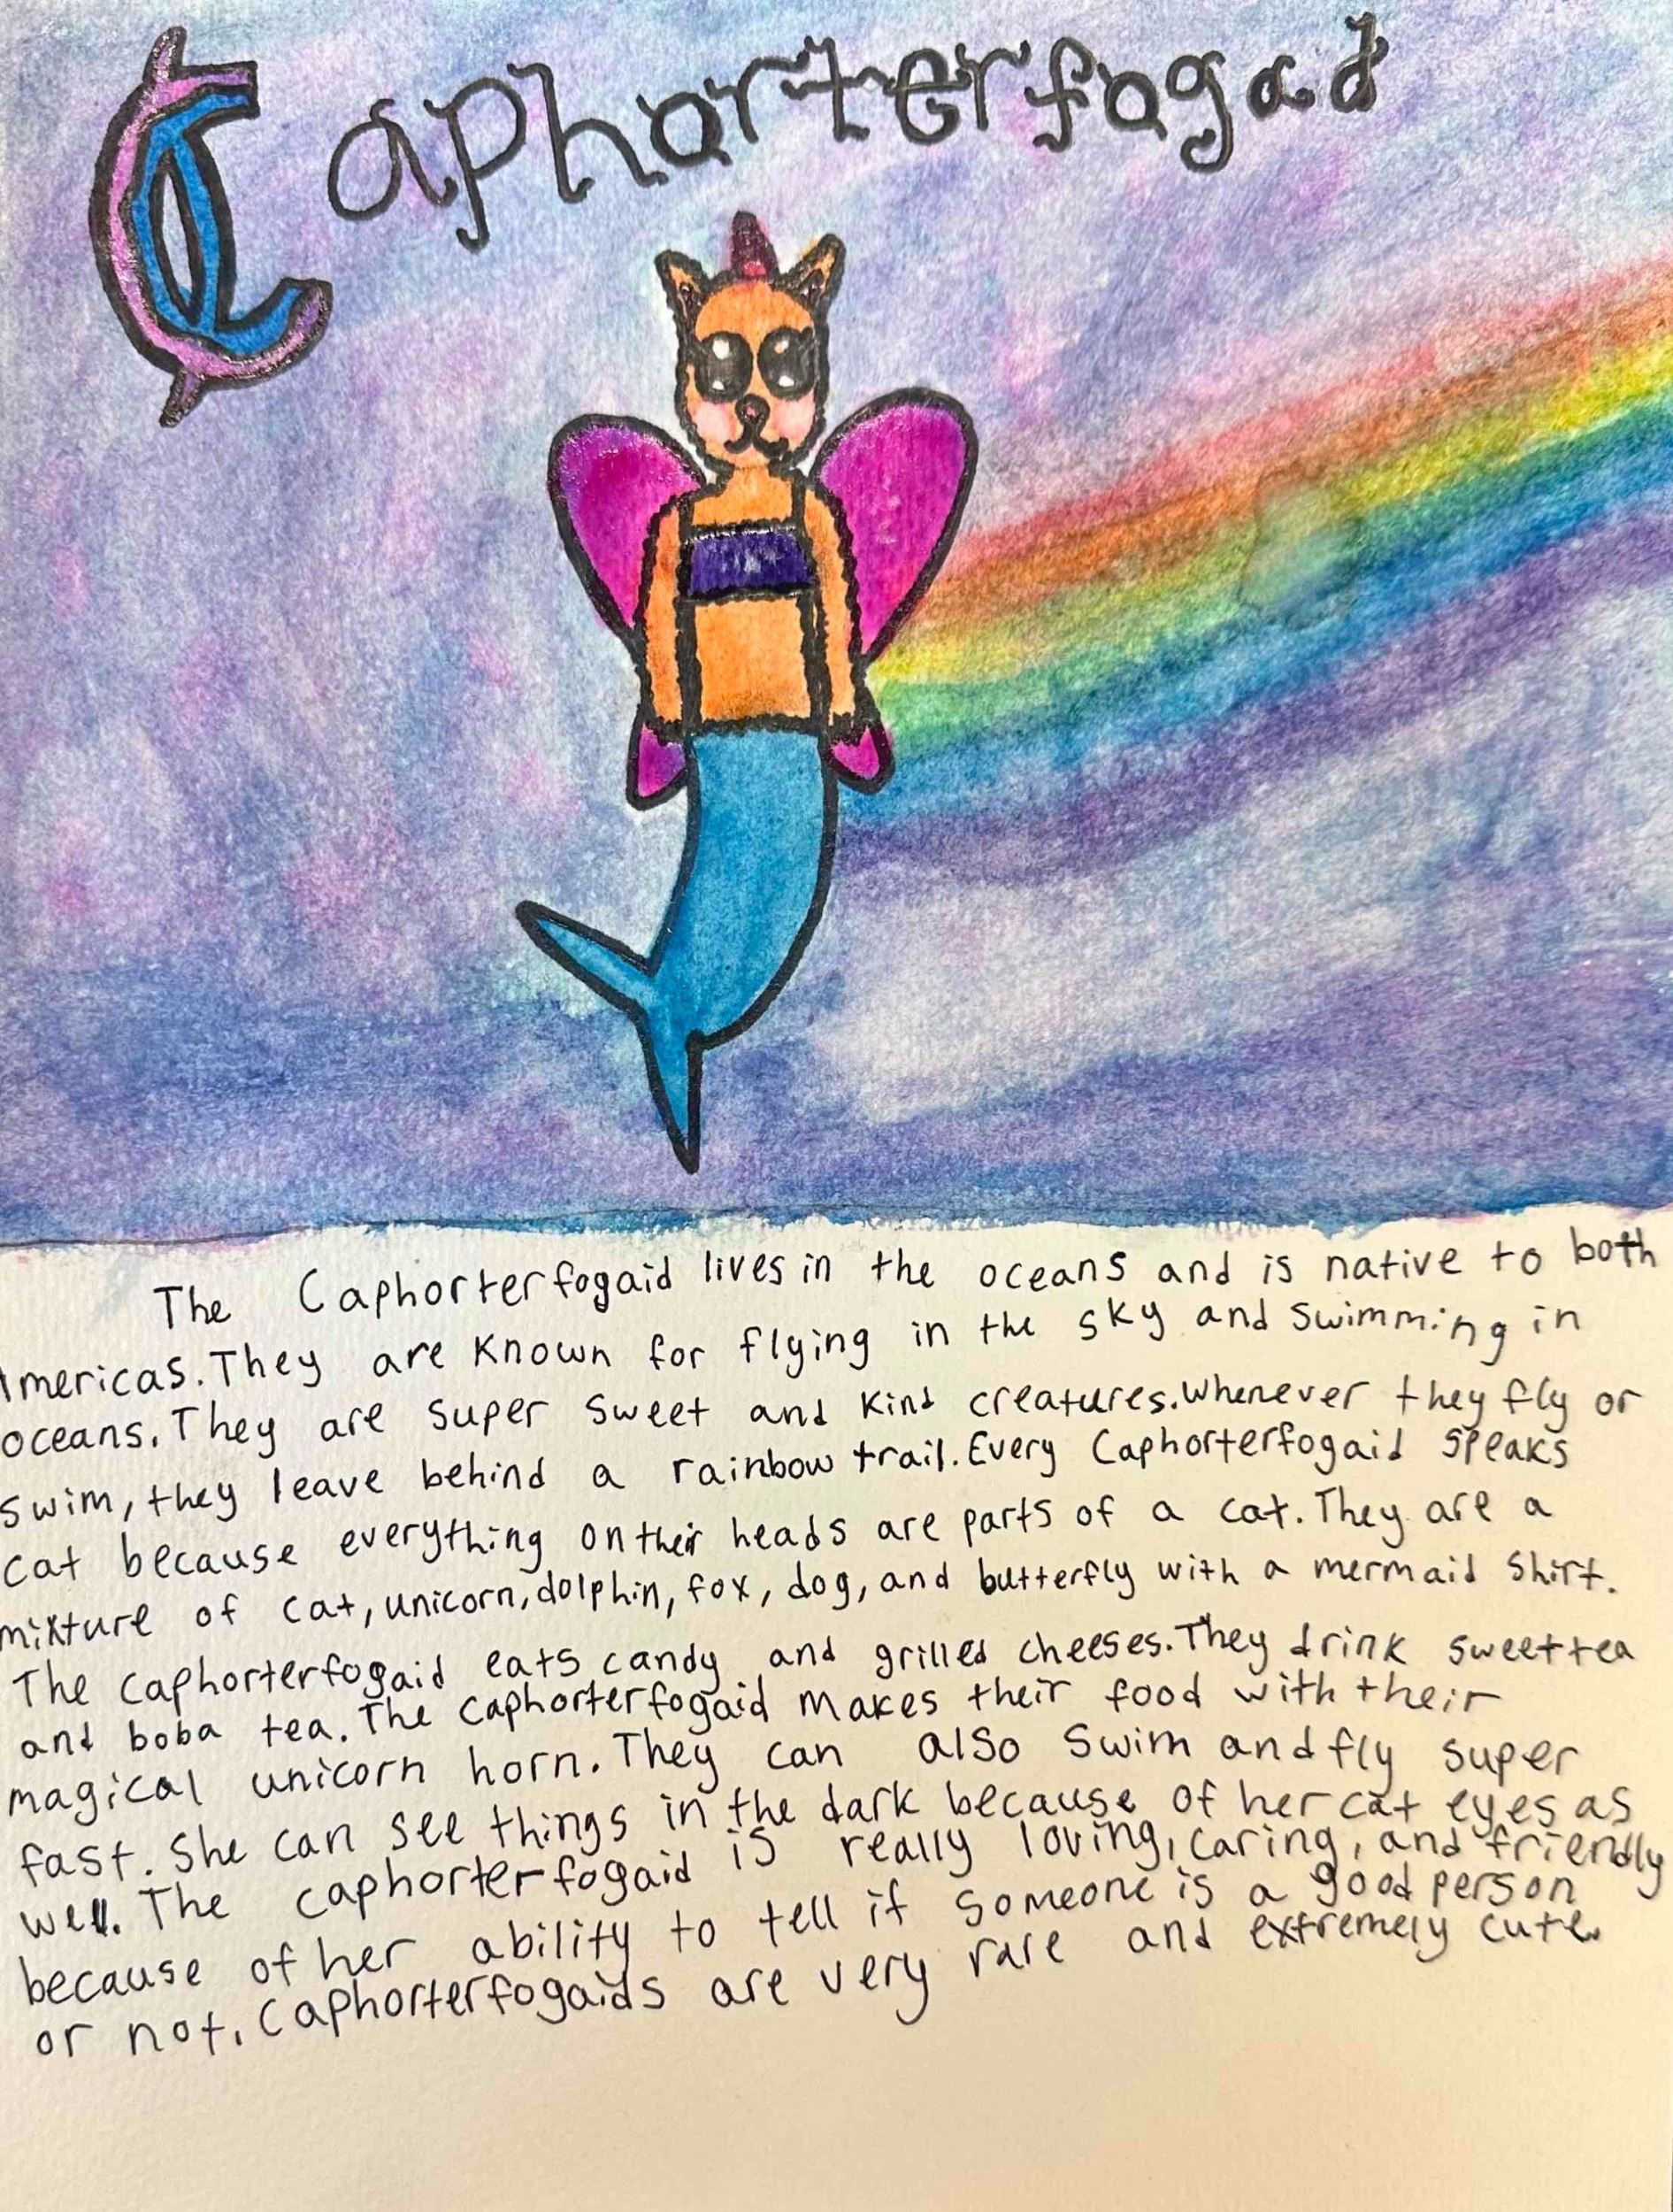 Caphorterfogad
The Caphorterfogaid lives in the oceans and is native to both
Americas. They are known for flying in the sky and swimming in
oceans. They are super sweet and kind creatures. Whenever they fly or
swim, they leave behind a rainbow trail. Every Caphorterfogaid speaks
cat because everything on their heads are parts of a cat. They are a
mixture of cat, unicorn, dolphin, fox, dog, and butterfly with a mermaid shirt.
The caphorterfogaid eats candy and grilled cheeses. They drink sweet tea
and boba tea. The caphorterfogaid makes their food with their
magical unicorn horn. They can also swim and fly super
fast. She can see things in the dark because of her cat eyes as
well. The caphorterfogaid is really loving, caring, and friendly
because of her ability to tell if someone is a good person
or not. Caphorterfogaids are very rare and extremely cute.